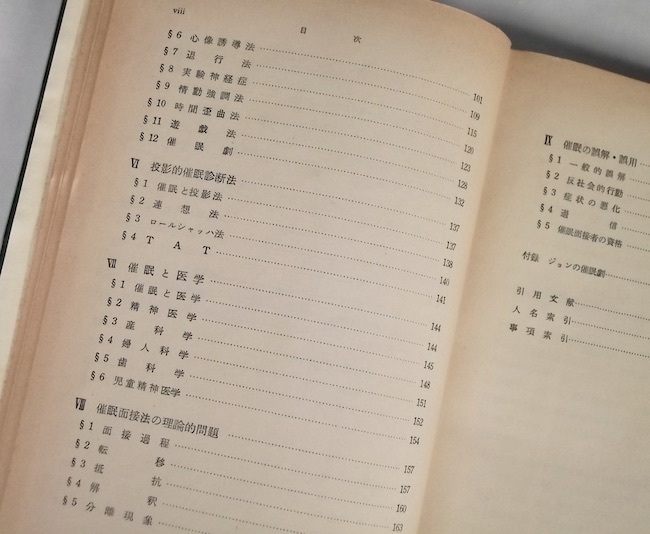 viii
目 次
§6 心像誘導法 101
§7 退行法 109
§8 実験神経症 115
§9 情動強調法 120
§10 時間歪曲法 123
§11 遊戯法 128
§12 催眠劇 132
Ⅵ 投影的催眠診断法 137
§1 催眠と投影法 137
§2 連想法 138
§3 ロールシャッハ法 140
§4 TAT 141
Ⅶ 催眠と医学 144
§1 催眠と医学 144
§2 精神医学 145
§3 産科学 148
§4 婦人科学 151
§5 歯科学 152
§6 児童精神医学 154
Ⅷ 催眠面接法の理論的問題 157
§1 面接過程 157
§2 転移 160
§3 抵抗 163
§4 解釈
§5 分離現象
Ⅸ 催眠の誤解・誤用
§1 一般的誤解
§2 反社会的行動
§3 症状の悪化
§4 過信
§5 催眠面接者の資格
付録 ジョンの催眠劇
引用文献
人名索引
事項索引